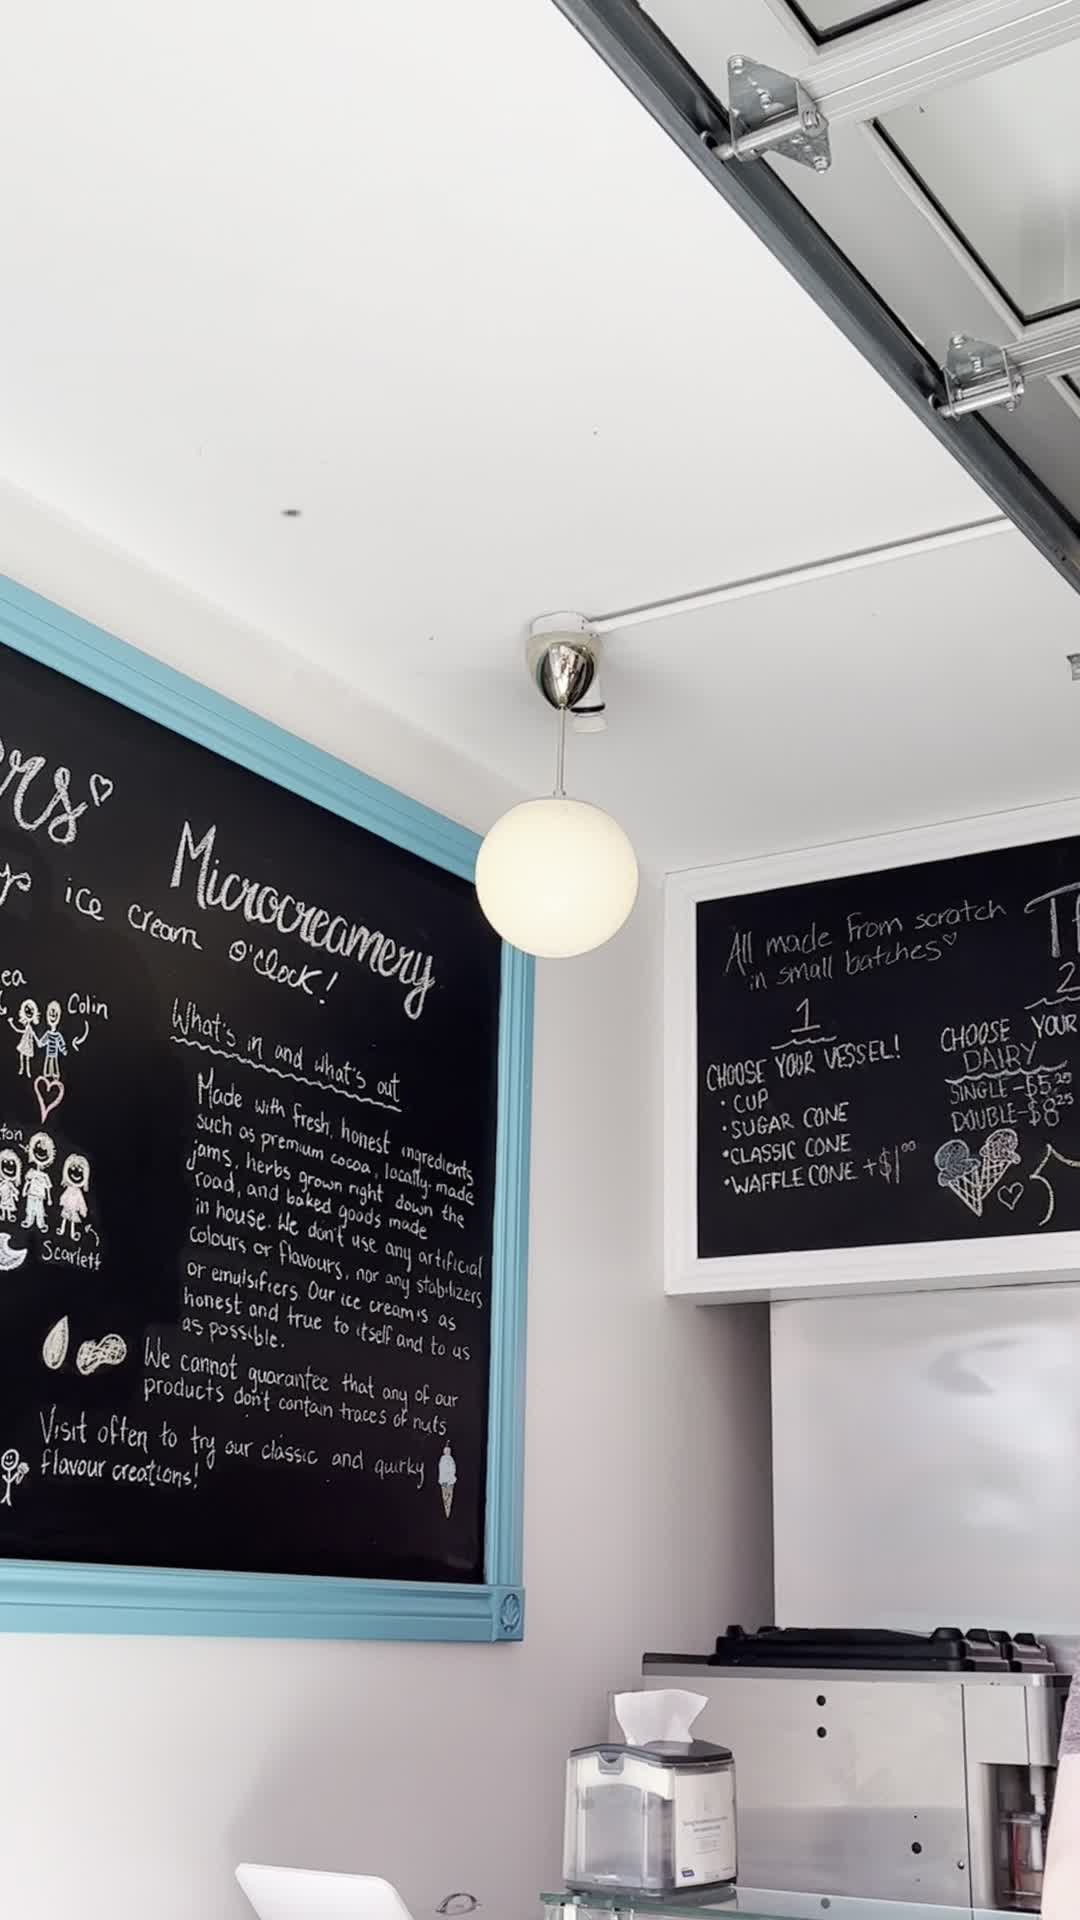 Microcreamery
ice cream o'clock!
Colin
Scarlett
What's in and what's out
Made with fresh, honest ingredients
such as premium cocoa, locally-made
jams, herbs grown right down the
road, and baked goods made
in house. We don't use any artificial
colours or flavours, nor any stabilizers
or emulsifiers. Our ice cream is as
honest and true to itself and to us
as possible.
We cannot guarantee that any of our
products don't contain traces of nuts
Visit often to try our classic and quirky
flavour creations!
All made from scratch
in small batches
1
CHOOSE YOUR VESSEL!
• CUP
• SUGAR CONE
• CLASSIC CONE
• WAFFLE CONE +$1.00
2
CHOOSE YOUR
DAIRY
SINGLE-$5.25
DOUBLE-$8.25